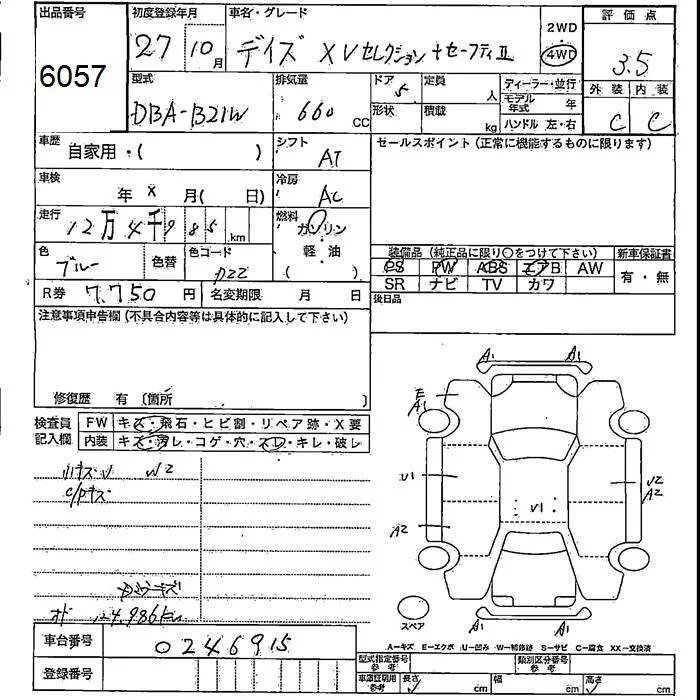 出品番号 初度登録年月 車名・グレード 2WD 評価点
6057 27 10月 デイズ XVセレクション+セーフティⅡ 4WD 3.5
型式 排気量 ドア 定員 ディーラー・並行 外装 内装
DBA-B21W 660 CC 5 人 モデル年式 年 C C
形状 積載 kg ハンドル 左・右
車歴 自家用・( ) シフト AT セールスポイント(正常に機能するものに限ります)
車検 年 X 月( 日) 冷房 AC
走行 12万4千985km 燃料 ガソリン
軽・油
( )
色 ブルー 色替 色コード 装備品(純正品に限り○をつけて下さい) 新車保証書
PS PW ABS エアB AW 有・無
SR ナビ TV カワ
R券 7,750円 名変期限 月 日 後日品
注意事項申告欄(不具合内容等は具体的に記入して下さい)
修復歴 有 〔箇所 〕
検査員記入欄 FW キズ・飛石・ヒビ割・リペア跡・X要
内装 キズ・汚レ・コゲ・穴・スレ・キレ・破レ
W2
A1 A1
E
A1
U1 U1 U2
A2
A2
スペア
A―キズ E―エクボ U―凹み W―補修跡 S―サビ C―腐食 XX―交換済
車台番号 0246915
登録番号
型式指定番号 参考 類別区分番号 参考
車庫証明用 参考 長さ cm 幅 cm 高さ cm